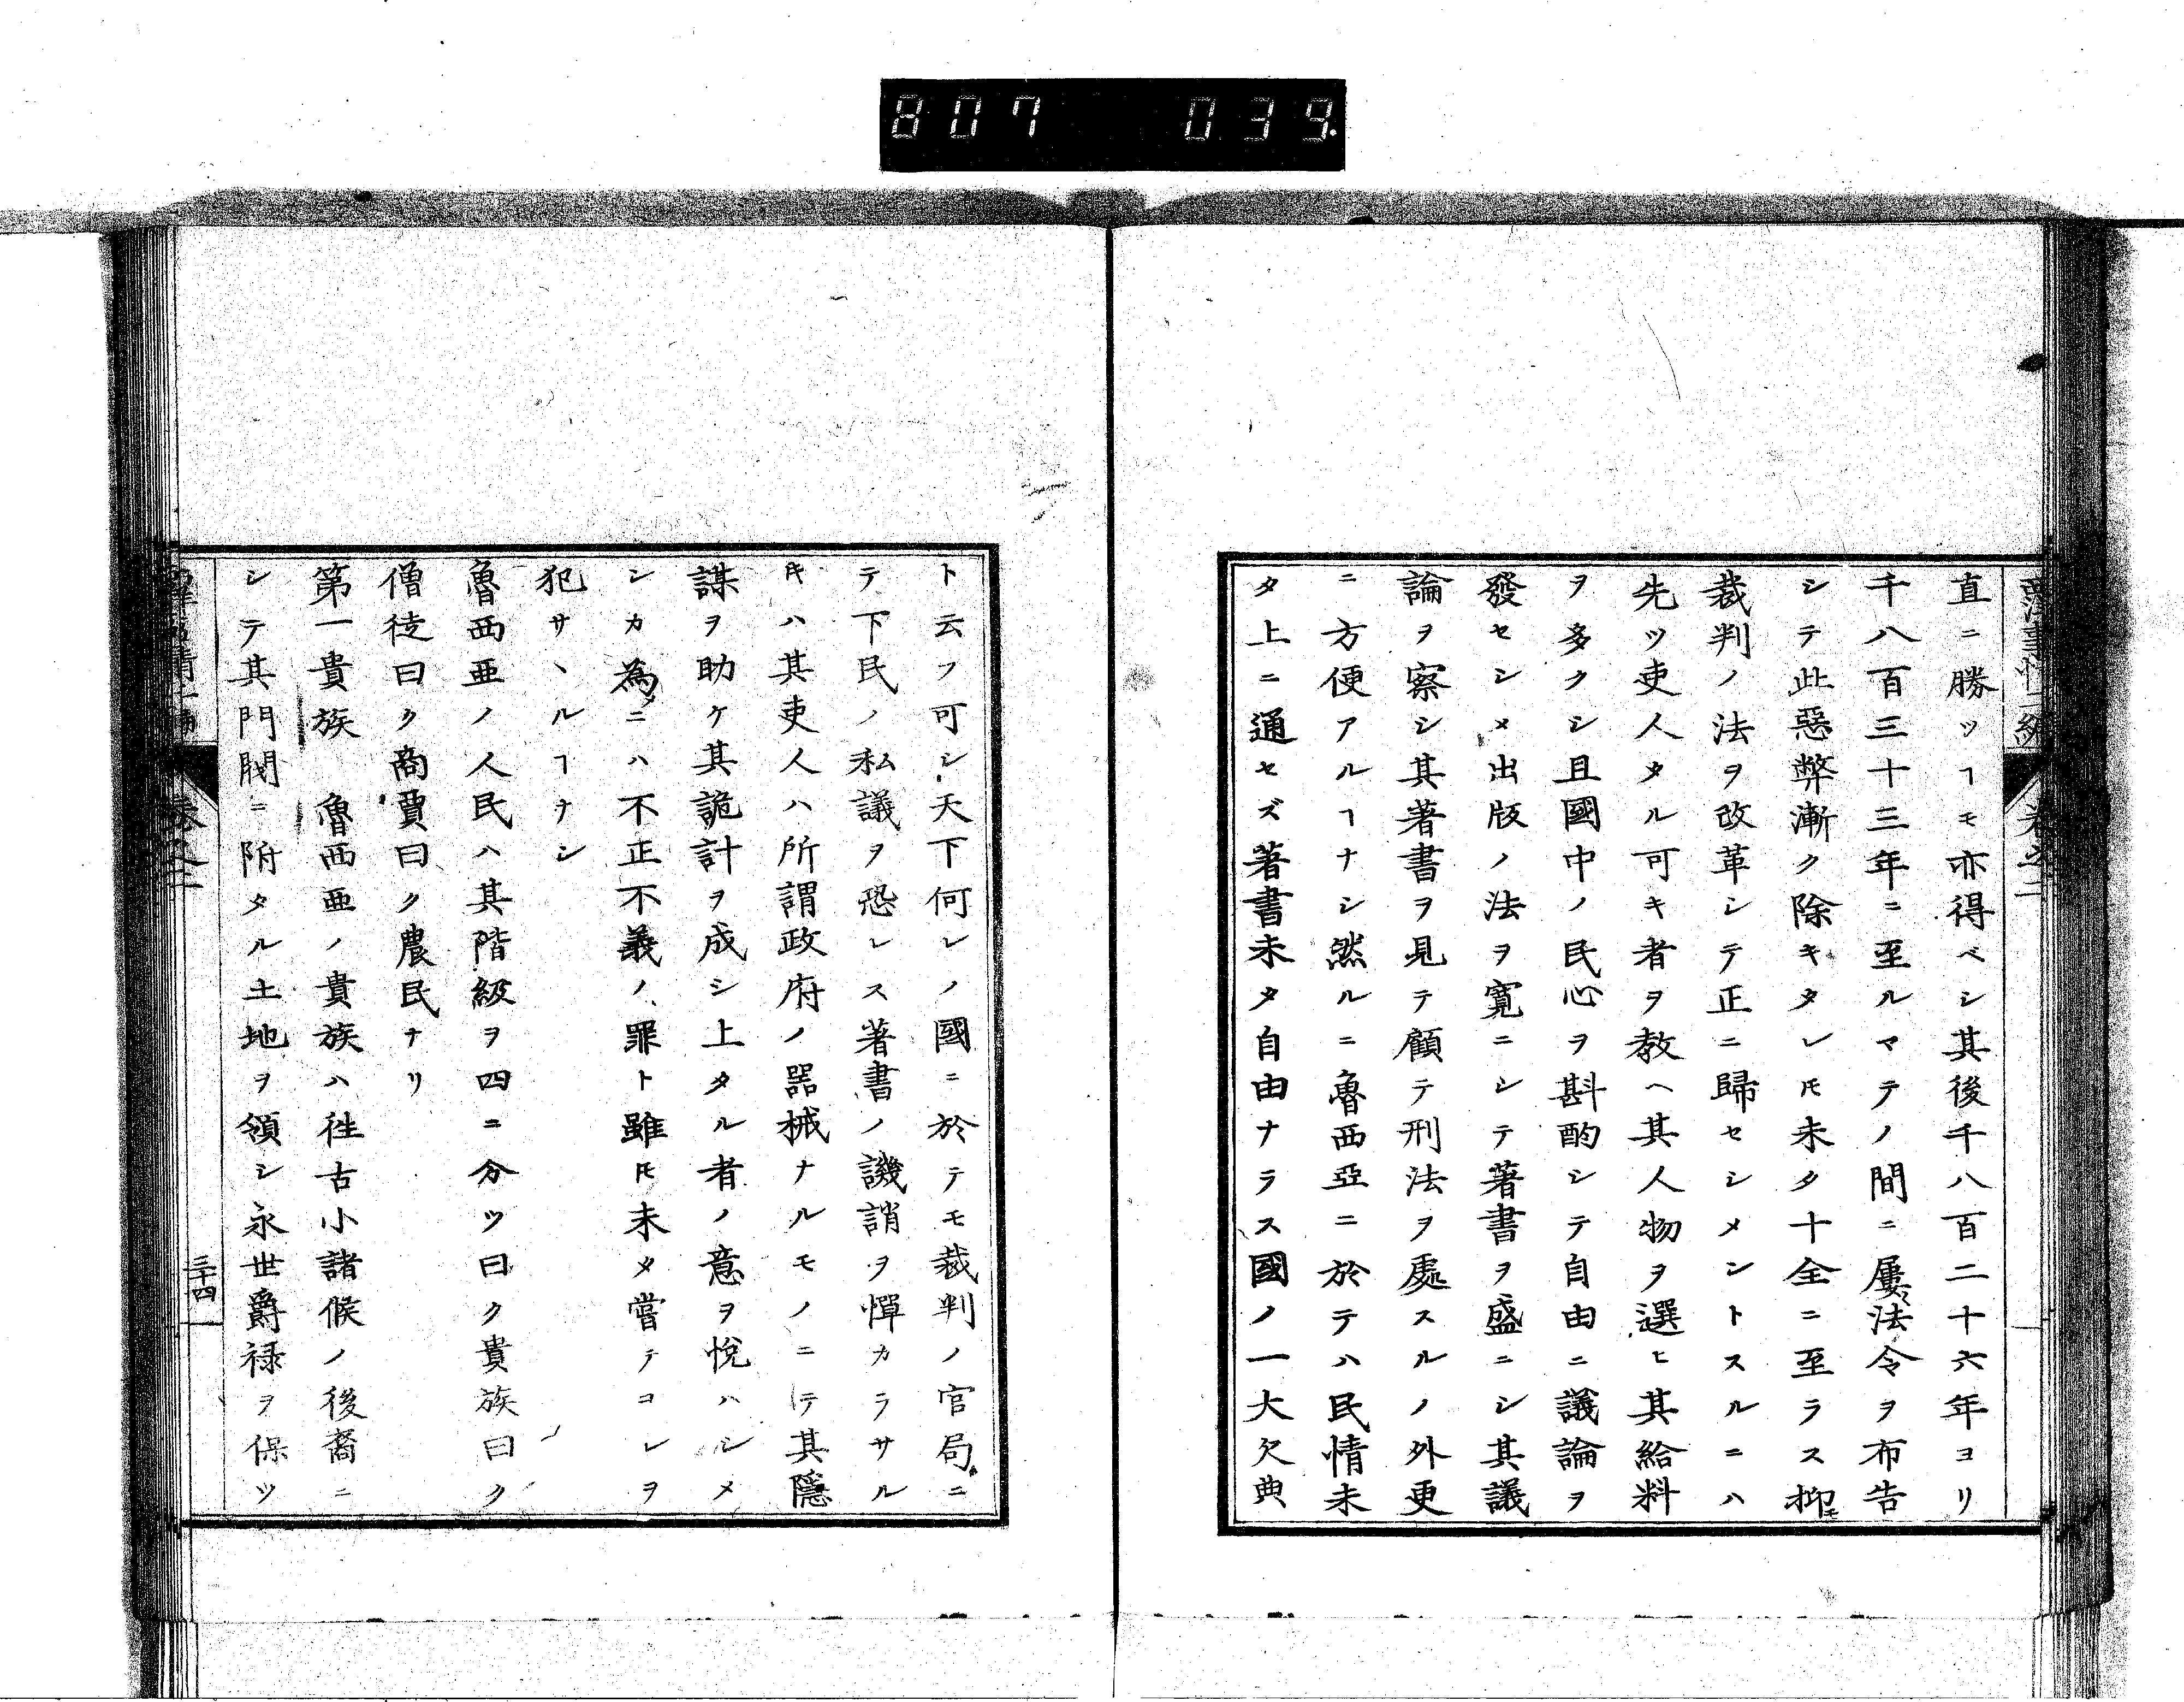 807 039.
西洋事情二編
卷之二
直ニ勝ツヿモ亦得ベシ其後千八百二十六年ヨリ
千八百三十三年ニ至ルマテノ間ニ屢〻法令ヲ布告
シテ此惡弊漸ク除キタレ𪜈未タ十全ニ至ラス抑モ
裁判ノ法ヲ改革シテ正ニ歸セシメントスルニハ
先ツ吏人タル可キ者ヲ教ヘ其人物ヲ選ヒ其給料
ヲ多クシ且國中ノ民心ヲ斟酌シテ自由ニ議論ヲ
發セシメ出版ノ法ヲ寛ニシテ著書ヲ盛ニシ其議
論ヲ察シ其著書ヲ見テ顧テ刑法ヲ處スルノ外更
ニ方便アルヿナシ然ルニ魯西亞ニ於テハ民情未
タ上ニ通セズ著書未タ自由ナラス國ノ一大欠典
ト云フ可シ天下何レノ國ニ於テモ裁判ノ官局ニ
テ下民ノ私議ヲ恐レス著書ノ譏誚ヲ憚カラサル
𪜈ハ其吏人ハ所謂政府ノ器械ナルモノニテ其隱
謀ヲ助ケ其詭計ヲ成シ上タル者ノ意ヲ悅ハシメ
ンカ為メニハ不正不義ノ罪ト雖𪜈未タ嘗テコレヲ
犯サヽルヿナシ
魯西亜ノ人民ハ其階級ヲ四ニ分ツ曰ク貴族曰ク
僧徒曰ク商賈曰ク農民ナリ
第一貴族　魯西亜ノ貴族ハ徃古小諸候ノ後裔ニ
シテ其門閥ニ附タル土地ヲ領シ永世爵禄ヲ保ツ
西洋事情二編
卷之二
三十四